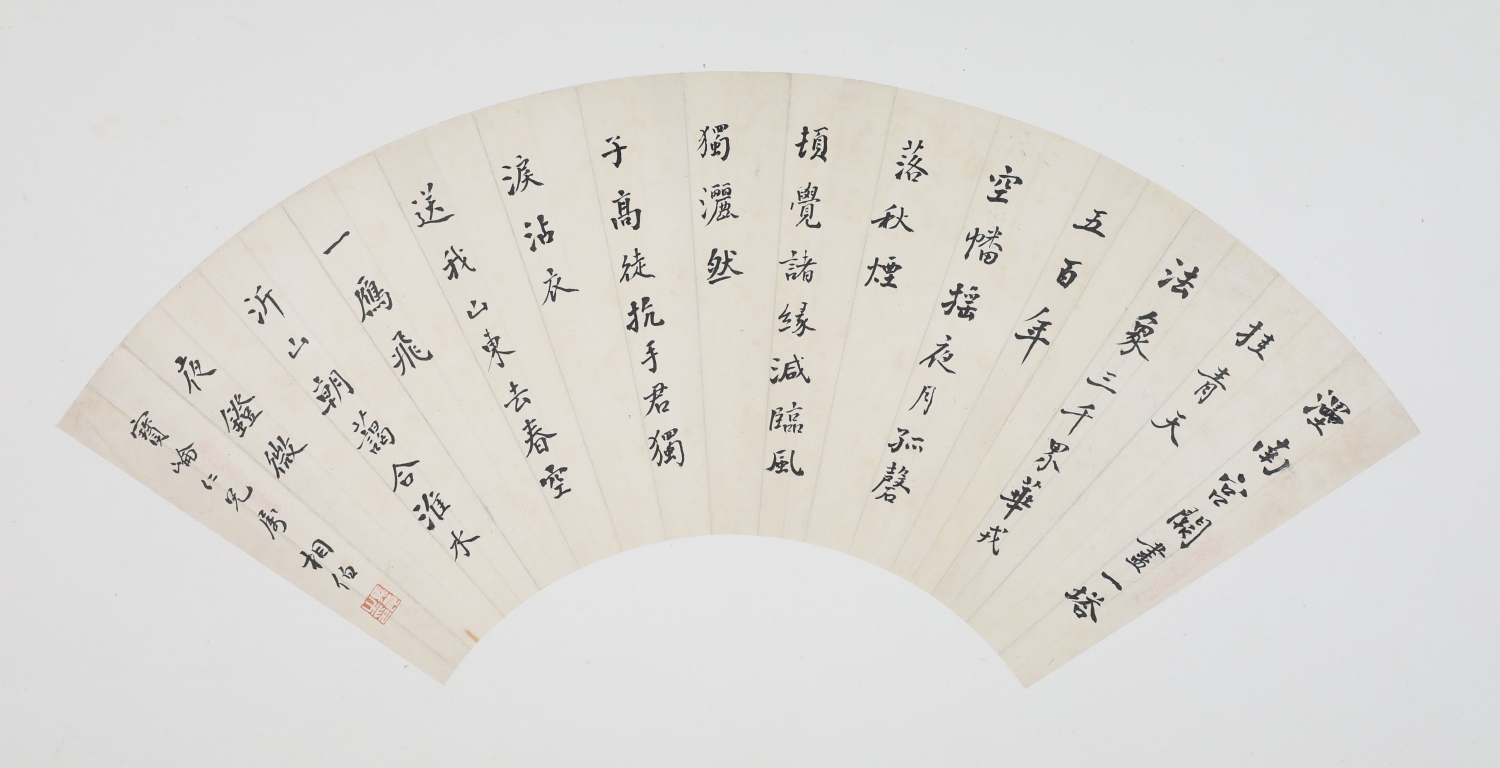 湮南宫闕盡一塔
挂青天
法象三千界華戎
五百年
空幡摇夜月孤磬
落秋煙
頓覺諸緣減臨風
獨灑然
子高徒抗手君獨
淚沾衣
送我山東去春空
一鴈飛
沂山朝藹合淮水
夜鐙微
寶崘仁兄屬 相伯